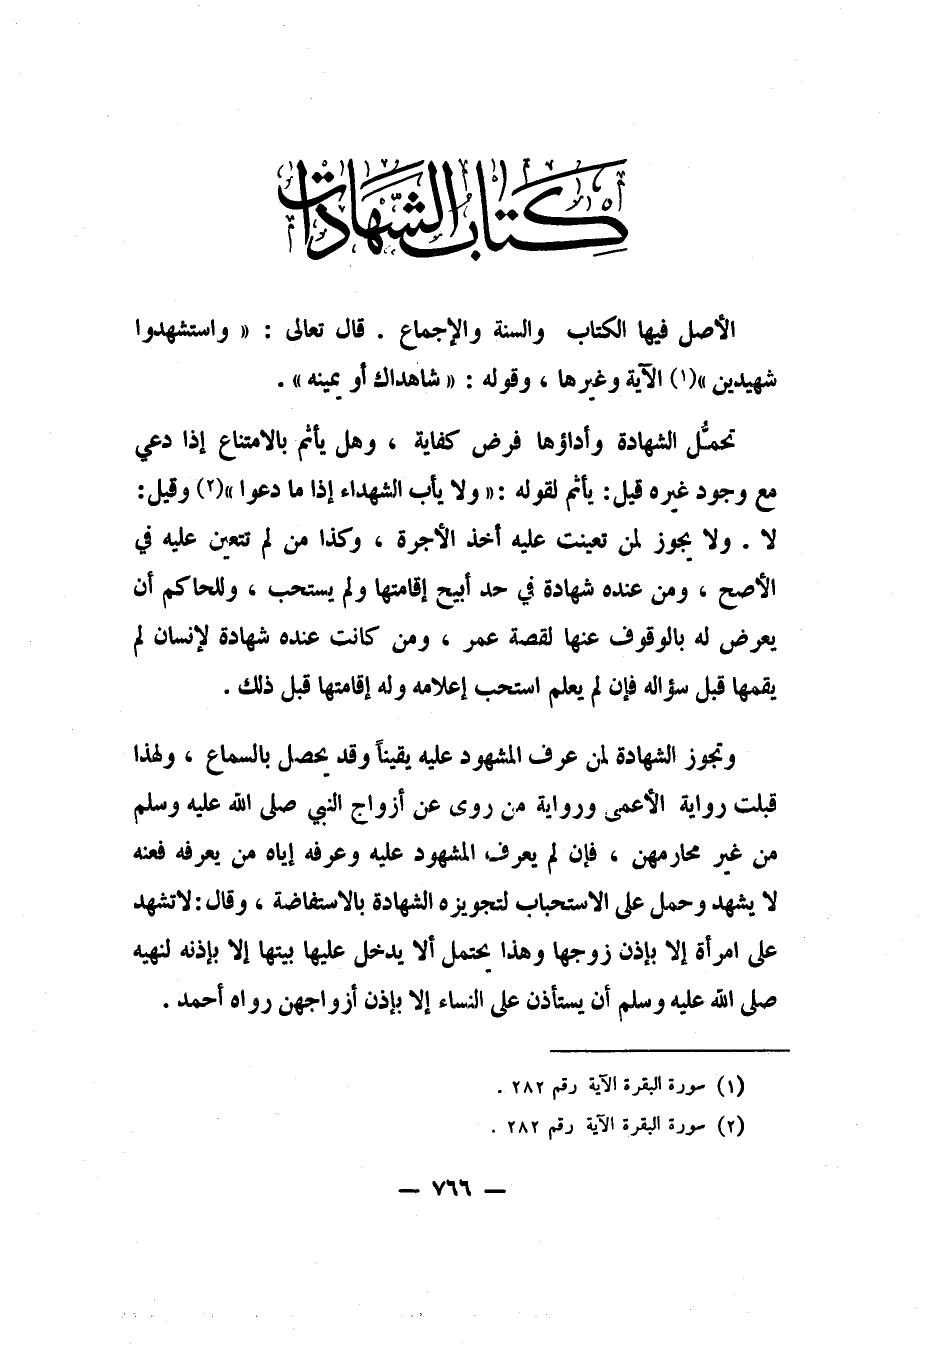 كتاب الشهادات
الأصل فيها الكتاب والسنة والإجماع . قال تعالى : « واستشهدوا
شهيدين »(١) الآية وغيرها ، وقوله : « شاهداك أو يمينه » .
تحمُّل الشهادة وأداؤها فرض كفاية ، وهل يأثم بالامتناع إذا دعي
مع وجود غيره قيل : يأثم لقوله : « ولا يأب الشهداء إذا ما دعوا »(٢) وقيل :
لا . ولا يجوز لمن تعينت عليه أخذ الأجرة ، وكذا من لم تتعين عليه في
الأصح ، ومن عنده شهادة في حد أبيح إقامتها ولم يستحب ، وللحاكم أن
يعرض له بالوقوف عنها لقصة عمر ، ومن كانت عنده شهادة لإنسان لم
يقمها قبل سؤاله فإن لم يعلم استحب إعلامه وله إقامتها قبل ذلك .
وتجوز الشهادة لمن عرف المشهود عليه يقيناً وقد يحصل بالسماع ، ولهذا
قبلت رواية الأعمى ورواية من روى عن أزواج النبي صلى الله عليه وسلم
من غير محارمهن ، فإن لم يعرف المشهود عليه وعرفه إياه من يعرفه فعنه
لا يشهد وحمل على الاستحباب لتجويزه الشهادة بالاستفاضة ، وقال : لا تشهد
على امرأة إلا بإذن زوجها وهذا يحتمل ألا يدخل عليها بيتها إلا بإذنه لنهيه
صلى الله عليه وسلم أن يستأذن على النساء إلا بإذن أزواجهن رواه أحمد .
(١) سورة البقرة الآية رقم ٢٨٢ .
(٢) سورة البقرة الآية رقم ٢٨٢ .
— ٧٦٦ —